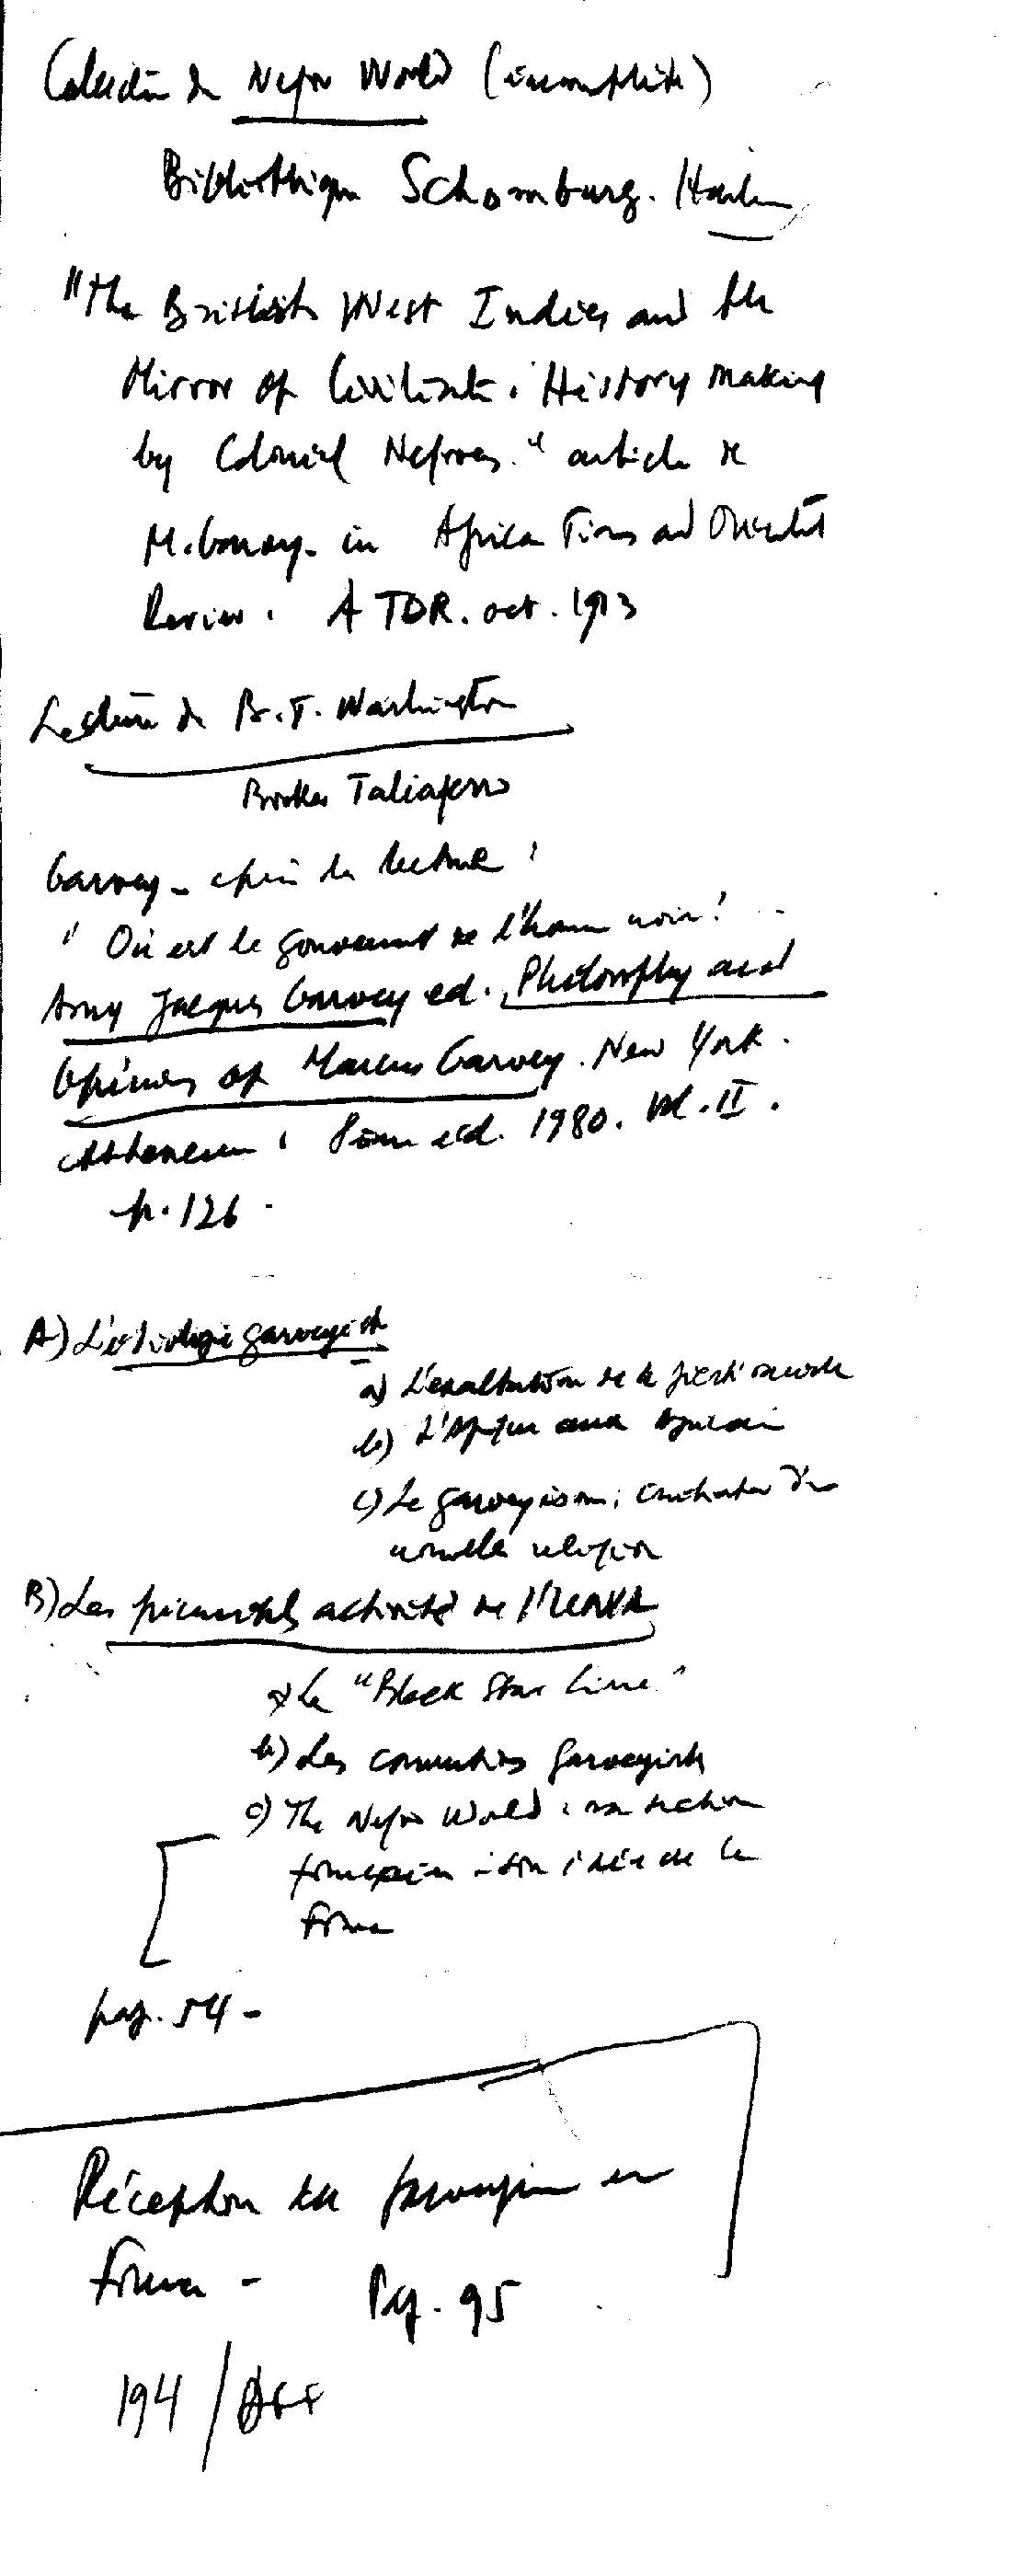 Collection de Negro World (incomplète)
Bibliothèque Schomburg. Harlem
"The British West Indies and the
Mirror of Civilizat. : History making
by Colonial Negroes." article de
M. Garvey - in Africa Times and Oriental
Review. ATOR. oct. 1913
Lecture de B.T. Washington
Booker Taliaferro
Garvey - après la lecture :
"Où est le gouvernement de l'homme noir?
Amy Jacques Garvey ed. Philosophy and
Opinions of Marcus Garvey. New York.
Atheneum : ed. 1980. Vol. II.
p. 126 -
A) L'idéologie garveyiste
a) L'exaltation de la fierté raciale
b) L'Afrique aux Africains
c) Le garveyisme : d'une
nouvelle religion
B) Les principales activités de l'UNIA
a) La "Black Star Line"
b) Les conventions garveyistes
c) The Negro World : sa section
française - son idée de la
France
pag. 54 -
Réception du garveyisme en
France - Pag. 95
194 /